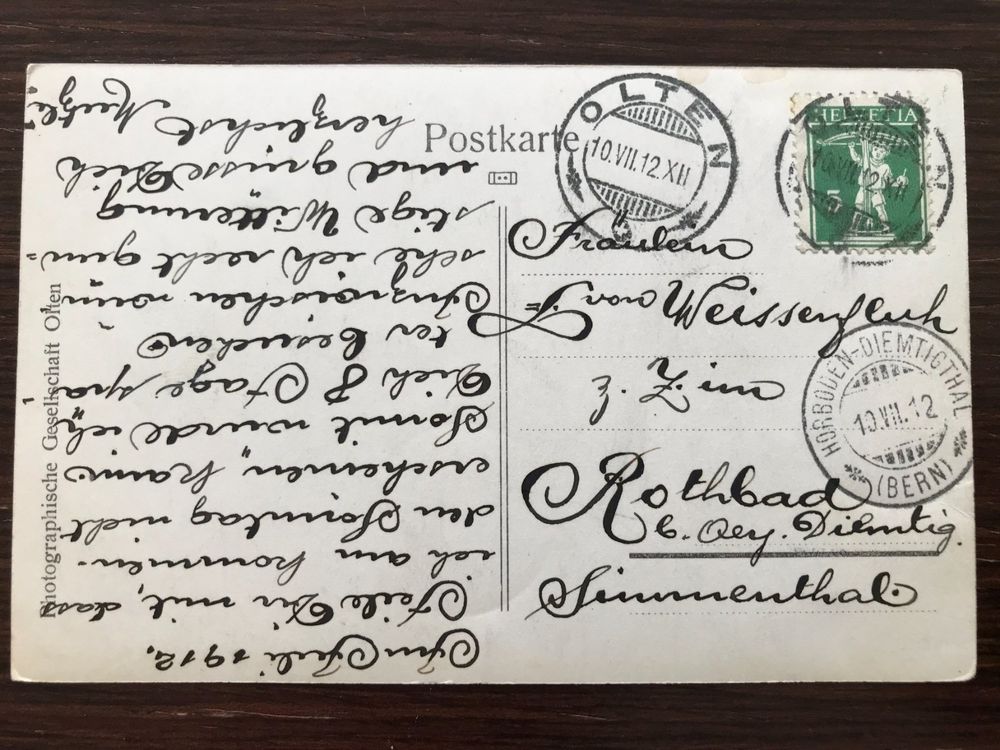 Postkarte
OLTEN
10.VII.12.XII
HELVETIA
5
OLTEN
10.VII.12.XII
Fräulein
von Weissenfluh
z. Z. im
Rothbad
b. Oey. Diemtig.
Simmenthal.
HORBODEN-DIEMTIGTHAL
10.VII.12
(BERN)
Photographische Gesellschaft Olten
Im Juli 1912.
Teile Dir mit, dass
ich am kommen-
den Sonntag nicht
erscheinen kann
Somit würde ich
Dich 8 Tage spä
ter besuchen
Inzwischen wün
sche ich recht gün=
stige Witterung
und grüsse Dich
herzlichst